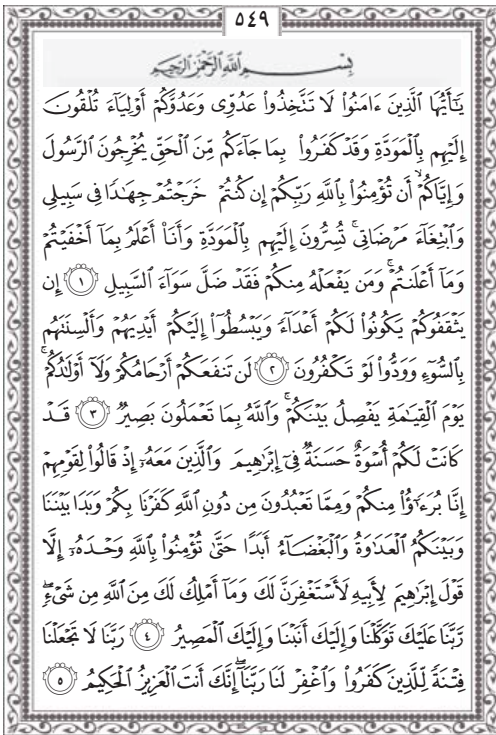 ٥٤٩
بِسْمِ اللَّهِ الرَّحْمَٰنِ الرَّحِيمِ
يَٰٓأَيُّهَا الَّذِينَ ءَامَنُوا۟ لَا تَتَّخِذُوا۟ عَدُوِّى وَعَدُوَّكُمْ أَوْلِيَآءَ تُلْقُونَ
إِلَيْهِم بِالْمَوَدَّةِ وَقَدْ كَفَرُوا۟ بِمَا جَآءَكُم مِّنَ الْحَقِّ يُخْرِجُونَ الرَّسُولَ
وَإِيَّاكُمْ ۙ أَن تُؤْمِنُوا۟ بِاللَّهِ رَبِّكُمْ إِن كُنتُمْ خَرَجْتُمْ جِهَٰدًا فِى سَبِيلِى
وَابْتِغَآءَ مَرْضَاتِى ۚ تُسِرُّونَ إِلَيْهِم بِالْمَوَدَّةِ وَأَنَا۠ أَعْلَمُ بِمَآ أَخْفَيْتُمْ
وَمَآ أَعْلَنتُمْ ۚ وَمَن يَفْعَلْهُ مِنكُمْ فَقَدْ ضَلَّ سَوَآءَ السَّبِيلِ ١ إِن
يَثْقَفُوكُمْ يَكُونُوا۟ لَكُمْ أَعْدَآءً وَيَبْسُطُوٓا۟ إِلَيْكُمْ أَيْدِيَهُمْ وَأَلْسِنَتَهُم
بِالسُّوٓءِ وَوَدُّوا۟ لَوْ تَكْفُرُونَ ٢ لَن تَنفَعَكُمْ أَرْحَامُكُمْ وَلَآ أَوْلَٰدُكُمْ ۚ
يَوْمَ الْقِيَٰمَةِ يَفْصِلُ بَيْنَكُمْ ۚ وَاللَّهُ بِمَا تَعْمَلُونَ بَصِيرٌ ٣ قَدْ
كَانَتْ لَكُمْ أُسْوَةٌ حَسَنَةٌ فِىٓ إِبْرَٰهِيمَ وَالَّذِينَ مَعَهُۥٓ إِذْ قَالُوا۟ لِقَوْمِهِمْ
إِنَّا بُرَءَٰٓؤُا۟ مِنكُمْ وَمِمَّا تَعْبُدُونَ مِن دُونِ اللَّهِ كَفَرْنَا بِكُمْ وَبَدَا بَيْنَنَا
وَبَيْنَكُمُ الْعَدَٰوَةُ وَالْبَغْضَآءُ أَبَدًا حَتَّىٰ تُؤْمِنُوا۟ بِاللَّهِ وَحْدَهُۥٓ إِلَّا
قَوْلَ إِبْرَٰهِيمَ لِأَبِيهِ لَأَسْتَغْفِرَنَّ لَكَ وَمَآ أَمْلِكُ لَكَ مِنَ اللَّهِ مِن شَىْءٍ ۖ
رَّبَّنَا عَلَيْكَ تَوَكَّلْنَا وَإِلَيْكَ أَنَبْنَا وَإِلَيْكَ الْمَصِيرُ ٤ رَبَّنَا لَا تَجْعَلْنَا
فِتْنَةً لِّلَّذِينَ كَفَرُوا۟ وَاغْفِرْ لَنَا رَبَّنَآ ۖ إِنَّكَ أَنتَ الْعَزِيزُ الْحَكِيمُ ٥